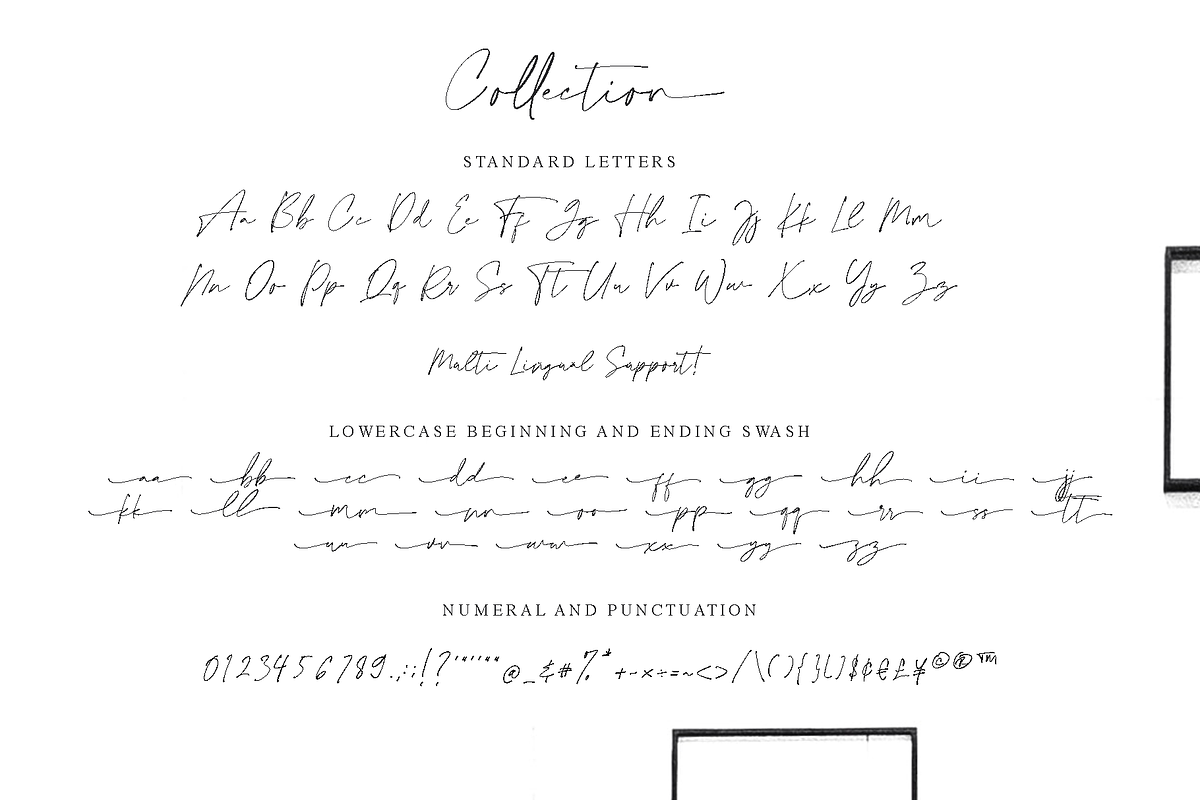 Collection
STANDARD LETTERS
Aa Bb Cc Dd Ee Ff Gg Hh Ii Jj Kk Ll Mm
Nn Oo Pp Qq Rr Ss Tt Uu Vv Ww Xx Yy Zz
Multi Lingual Support!
LOWERCASE BEGINNING AND ENDING SWASH
aa bb cc dd ee ff gg hh ii jj
kk ll mm nn oo pp qq rr ss tt
uu vv ww xx yy zz
NUMERAL AND PUNCTUATION
0123456789.,:;!?'"‘’“”@_&#%*+-×÷=~<>/\(){}[]$¢€£¥©®™